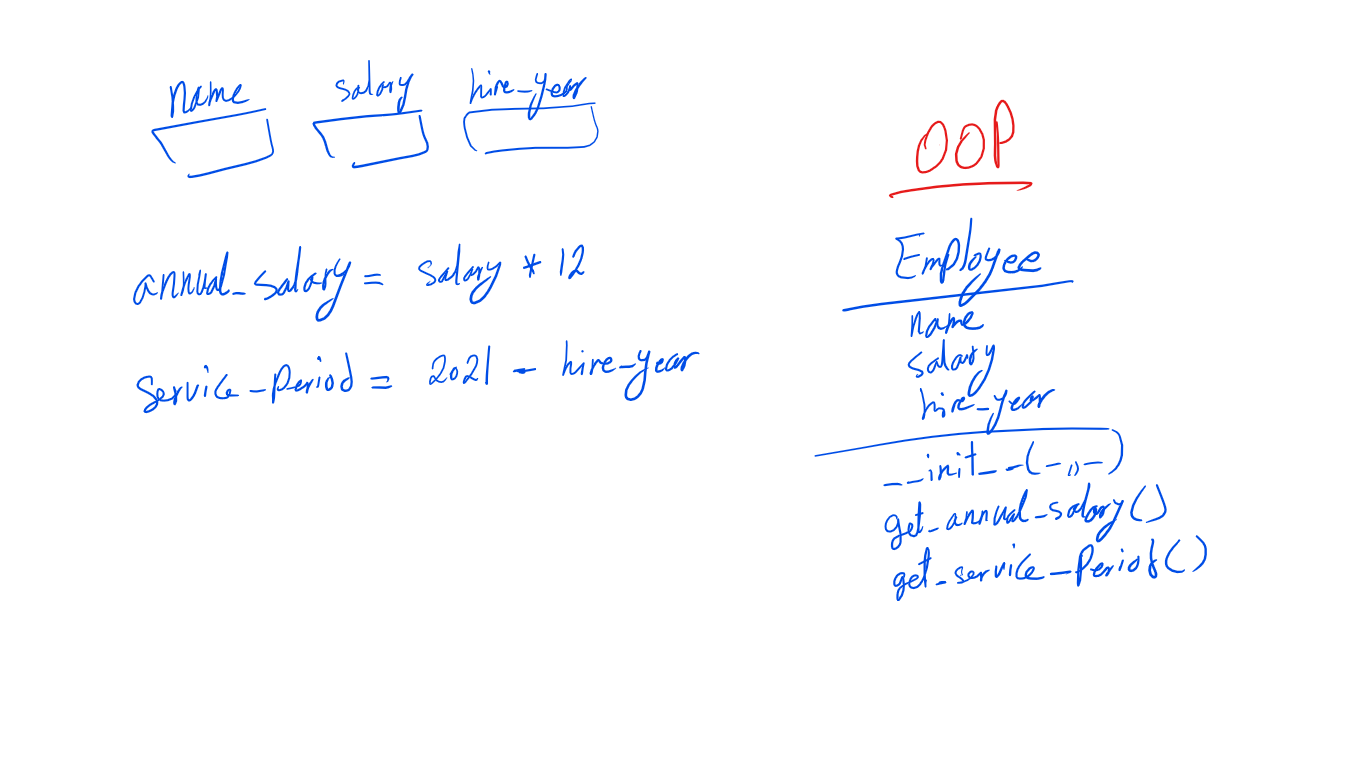 name salary hire_year
annual_salary = salary * 12
service_period = 2021 - hire_year
OOP
Employee
name
salary
hire_year
__init__(-,,-)
get_annual_salary()
get_service_period()